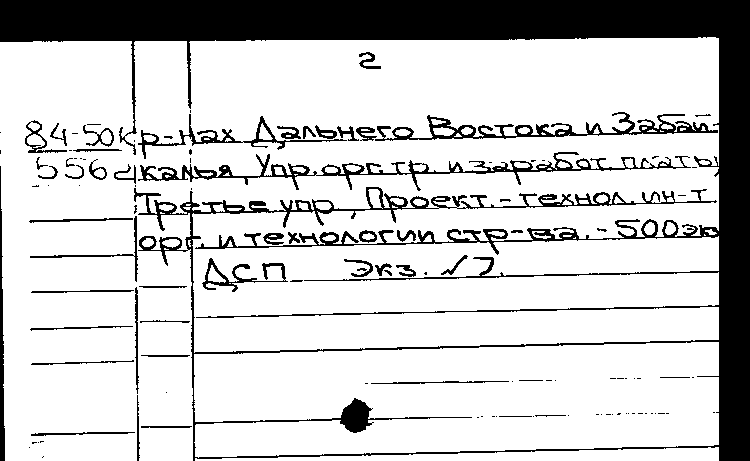 2
84-50к р-нах Дальнего Востока и Забай-
556д калья, Упр. орг. тр. и заработ. платы,
Третье упр., Проект.-технол. ин-т.
орг. и технологии стр-ва. - 500 эк
ДСП Экз. №